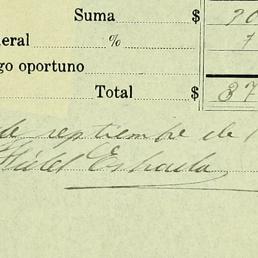 Suma $ 90
eral % 7
go oportuno
Total $ 37
de septiembre de 1
Fidel Estrada